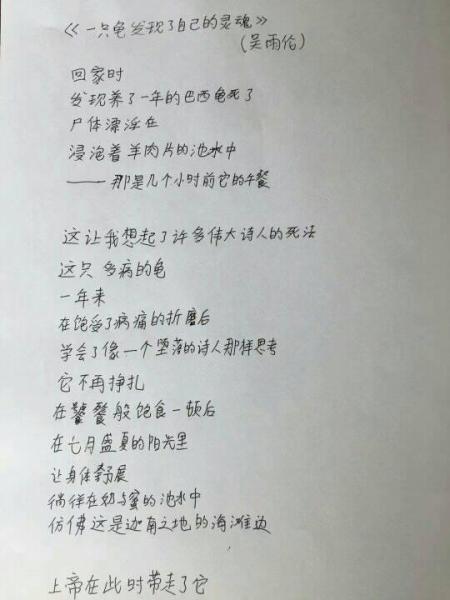 《一只龟发现了自己的灵魂》
(吴雨伦)
回家时
发现养了一年的巴西龟死了
尸体漂浮在
浸泡着羊肉片的池水中
——那是几个小时前它的午餐
这让我想起了许多伟大诗人的死法
这只多病的龟
一年来
在饱受了病痛的折磨后
学会了像一个堕落的诗人那样思考
它不再挣扎
在饕餮般饱食一顿后
在七月盛夏的阳光里
让身体舒展
徜徉在奶与蜜的池水中
仿佛这是迦南之地的海滩边
上帝在此时带走了它